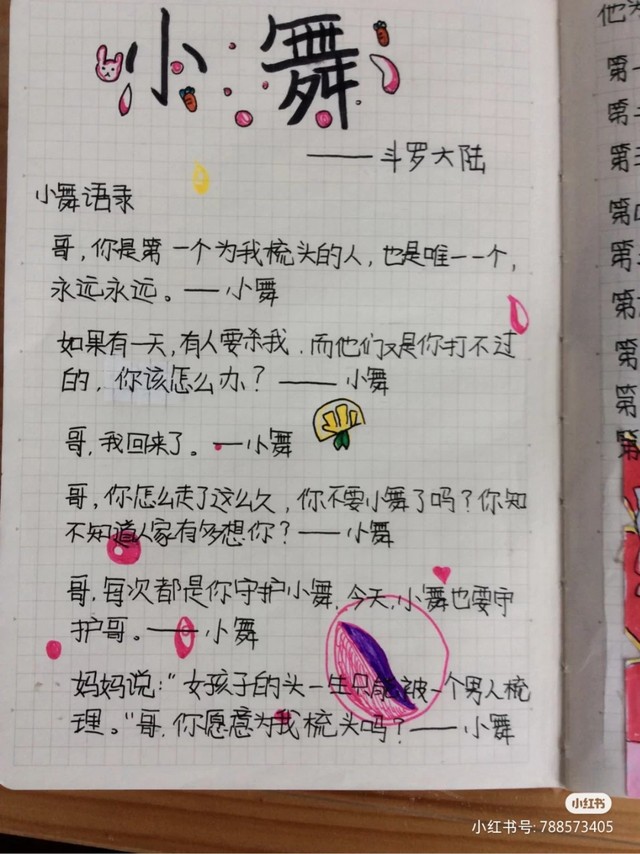 小舞
——斗罗大陆
小舞语录
哥，你是第一个为我梳头的人，也是唯一一个，
永远永远。——小舞
如果有一天，有人要杀我，而他们又是你打不过
的，你该怎么办？——小舞
哥，我回来了。——小舞
哥，你怎么走了这么久，你不要小舞了吗？你知
不知道人家有多想你？——小舞
哥，每次都是你守护小舞，今天，小舞也要守
护哥。——小舞
妈妈说：“女孩子的头一生只能被一个男人梳
理。”哥，你愿意为我梳头吗？——小舞
第一
第二
第三
第四
第
第
第
第
第
小红书
小红书号: 788573405